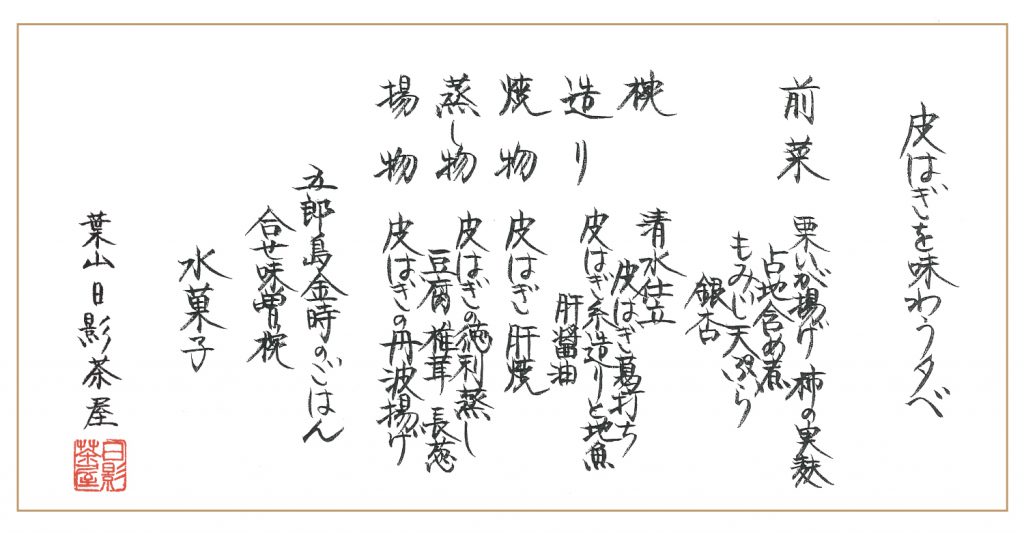 皮はぎを味わう夕べ
前菜 栗いが揚げ 柿の実麩
占地含め煮
もみじ天ぷら
銀杏
椀 清水仕立
皮はぎ葛打ち
造り 皮はぎ糸造りと地魚
肝醤油
焼物 皮はぎ肝焼
蒸し物 皮はぎの徳利蒸し
豆腐 椎茸 長葱
揚物 皮はぎの丹波揚げ
五郎島金時のごはん
合せ味噌椀
水菓子
葉山日影茶屋
日影
茶屋